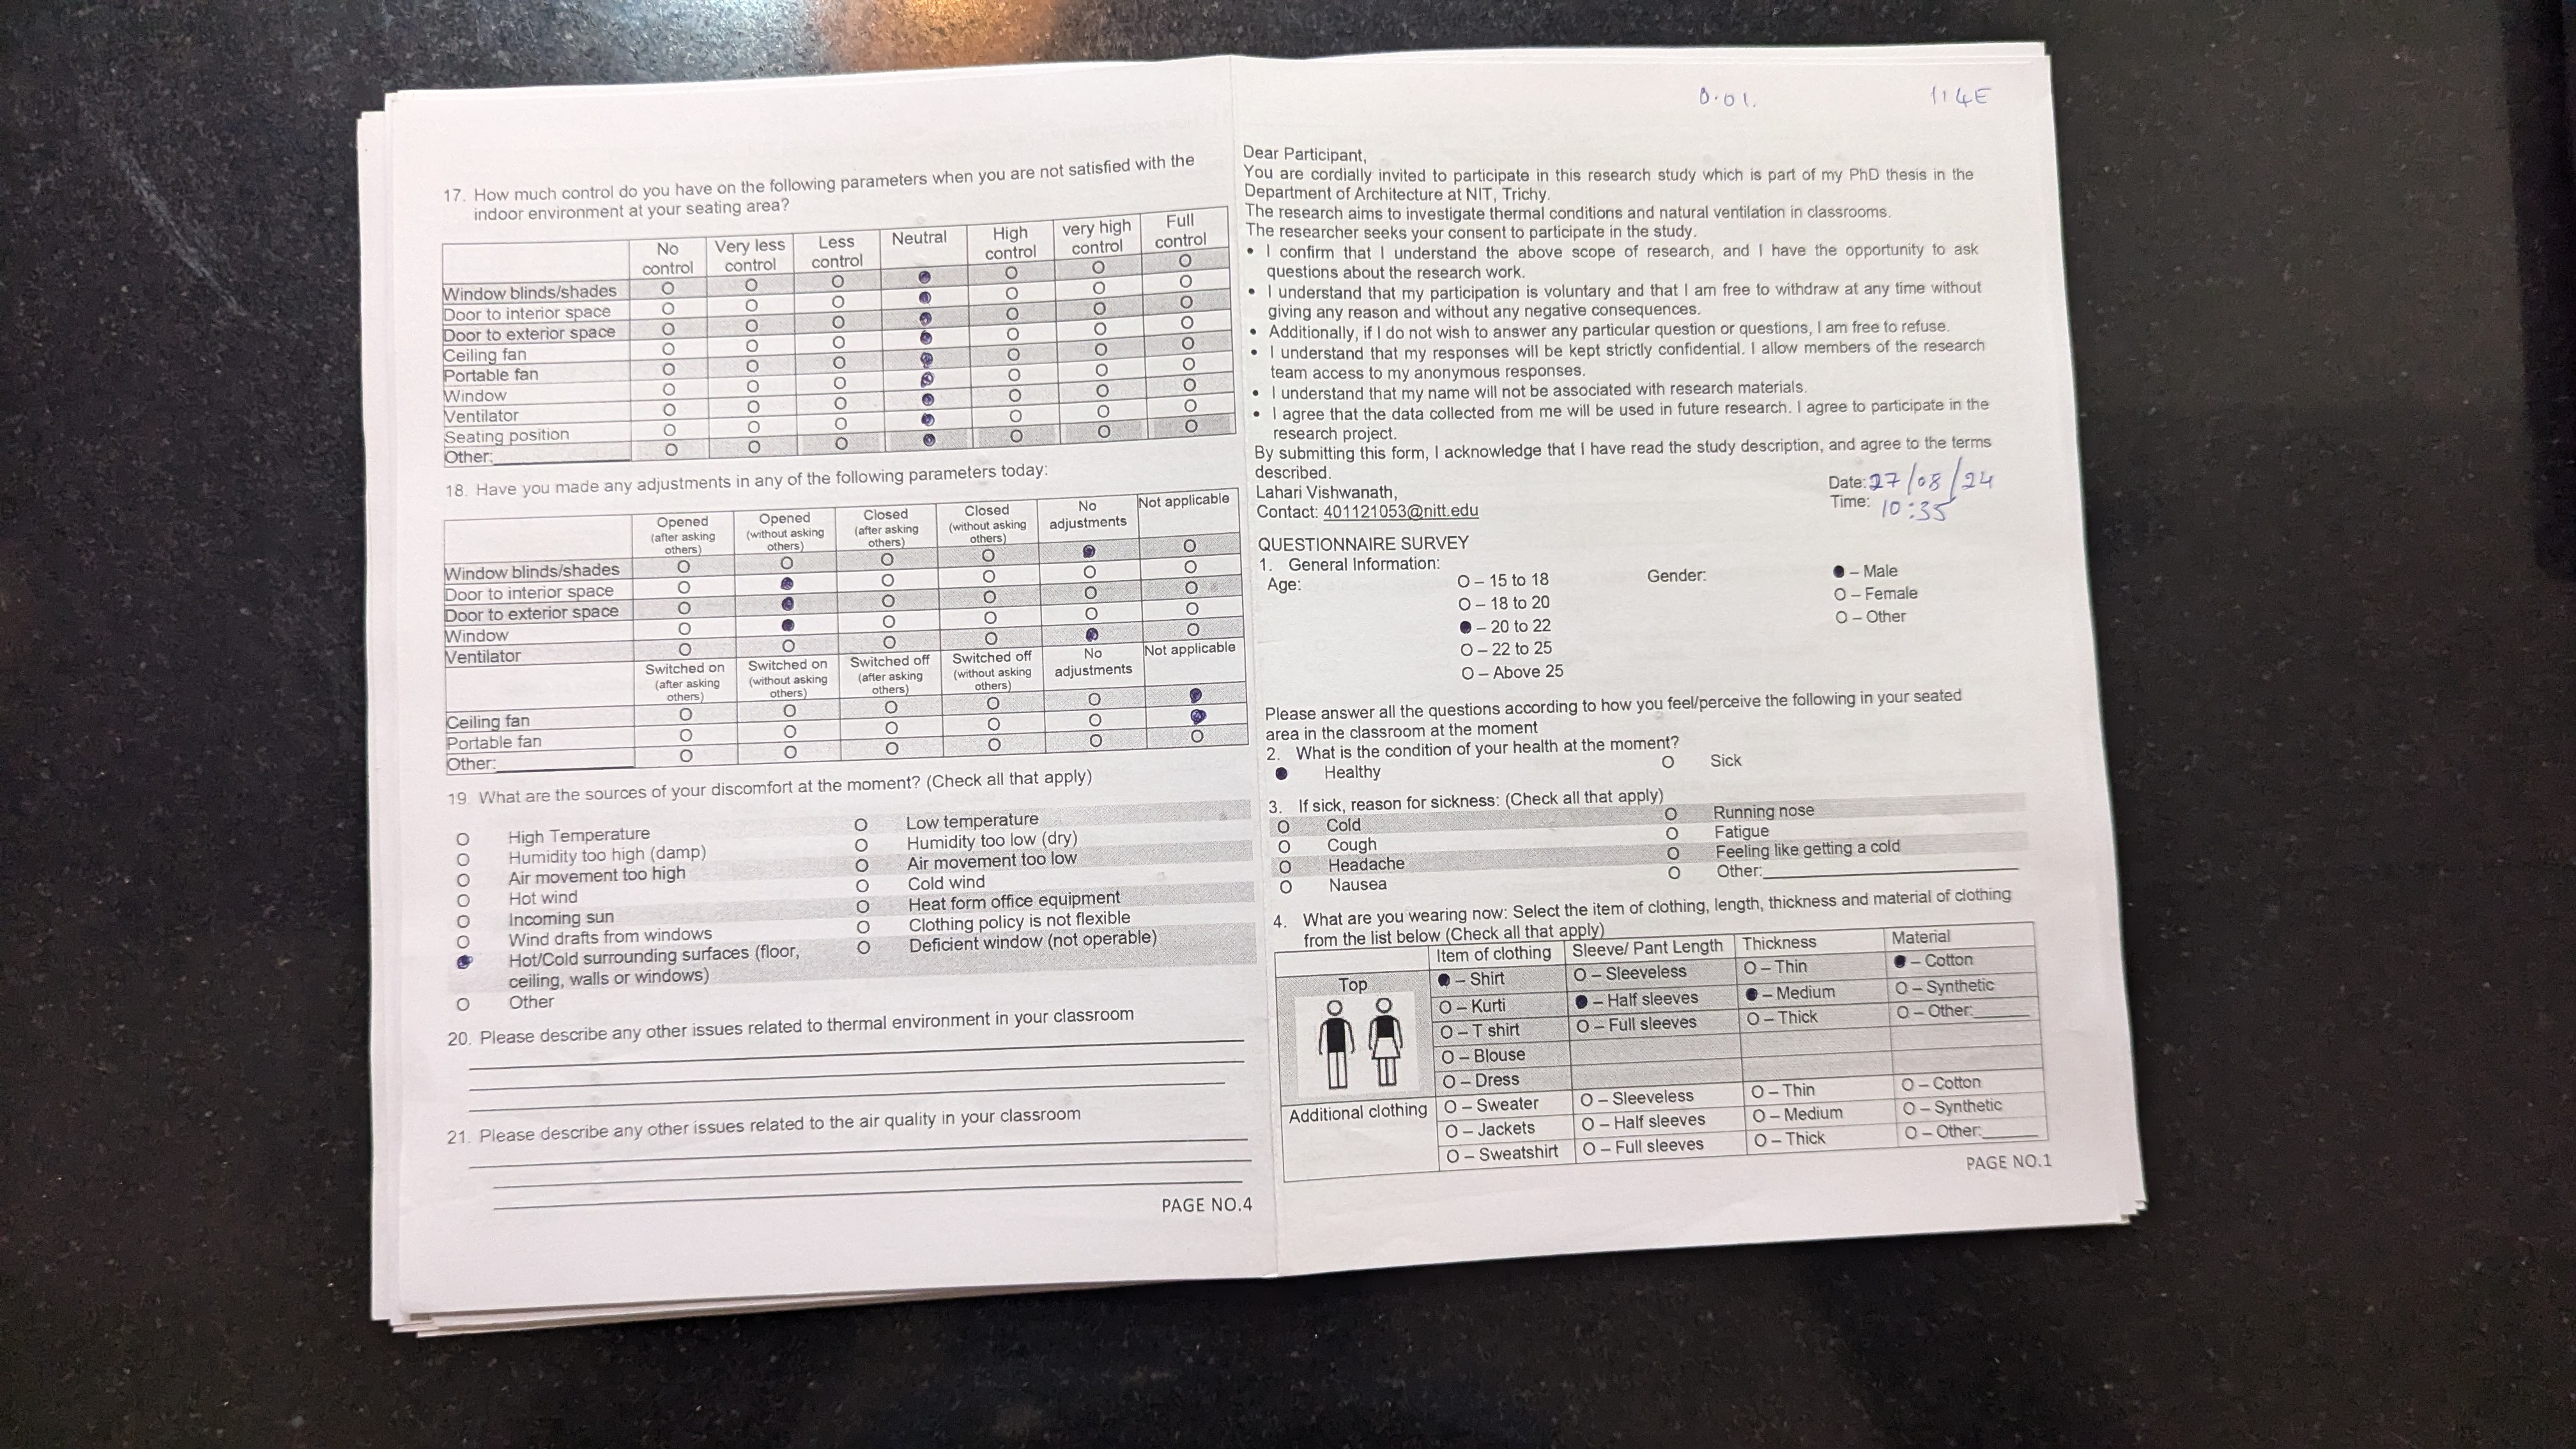 17. How much control do you have on the following parameters when you are not satisfied with the
indoor environment at your seating area?
No control Very less control Less control Neutral High control very high control Full control
Window blinds/shades O O O ● O O O
Door to interior space O O O ● O O O
Door to exterior space O O O ● O O O
Ceiling fan O O O ● O O O
Portable fan O O O ● O O O
Window O O O ● O O O
Ventilator O O O ● O O O
Seating position O O O ● O O O
Other:________ O O O ● O O O
18. Have you made any adjustments in any of the following parameters today:
Opened (after asking others) Opened (without asking others) Closed (after asking others) Closed (without asking others) No adjustments Not applicable
Window blinds/shades O O O O ● O
Door to interior space O ● O O O O
Door to exterior space O ● O O O O
Window O ● O O O O
Ventilator O O O O ● O
Switched on (after asking others) Switched on (without asking others) Switched off (after asking others) Switched off (without asking others) No adjustments Not applicable
Ceiling fan O O O O O ●
Portable fan O O O O O ●
Other:________ O O O O O O
19. What are the sources of your discomfort at the moment? (Check all that apply)
O High Temperature O Low temperature
O Humidity too high (damp) O Humidity too low (dry)
O Air movement too high O Air movement too low
O Hot wind O Cold wind
O Incoming sun O Heat form office equipment
O Wind drafts from windows O Clothing policy is not flexible
● Hot/Cold surrounding surfaces (floor, O Deficient window (not operable)
ceiling, walls or windows)
O Other
20. Please describe any other issues related to thermal environment in your classroom
21. Please describe any other issues related to the air quality in your classroom
PAGE NO.4
0.01. 114E
Dear Participant,
You are cordially invited to participate in this research study which is part of my PhD thesis in the
Department of Architecture at NIT, Trichy.
The research aims to investigate thermal conditions and natural ventilation in classrooms.
The researcher seeks your consent to participate in the study.
• I confirm that I understand the above scope of research, and I have the opportunity to ask
questions about the research work.
• I understand that my participation is voluntary and that I am free to withdraw at any time without
giving any reason and without any negative consequences.
• Additionally, if I do not wish to answer any particular question or questions, I am free to refuse.
• I understand that my responses will be kept strictly confidential. I allow members of the research
team access to my anonymous responses.
• I understand that my name will not be associated with research materials.
• I agree that the data collected from me will be used in future research. I agree to participate in the
research project.
By submitting this form, I acknowledge that I have read the study description, and agree to the terms
described.
Date: 27/08/24
Lahari Vishwanath,
Time: 10:35
Contact: 401121053@nitt.edu
QUESTIONNAIRE SURVEY
1. General Information:
Age: O – 15 to 18 Gender: ● – Male
O – 18 to 20 O – Female
● – 20 to 22 O – Other
O – 22 to 25
O – Above 25
Please answer all the questions according to how you feel/perceive the following in your seated
area in the classroom at the moment
2. What is the condition of your health at the moment?
● Healthy O Sick
3. If sick, reason for sickness: (Check all that apply)
O Cold O Running nose
O Cough O Fatigue
O Headache O Feeling like getting a cold
O Nausea O Other:________
4. What are you wearing now: Select the item of clothing, length, thickness and material of clothing
from the list below (Check all that apply)
Item of clothing Sleeve/ Pant Length Thickness Material
Top ● – Shirt O – Sleeveless O – Thin ● – Cotton
O – Kurti ● – Half sleeves ● – Medium O – Synthetic
O – T shirt O – Full sleeves O – Thick O – Other:______
O – Blouse
O – Dress
Additional clothing O – Sweater O – Sleeveless O – Thin O – Cotton
O – Jackets O – Half sleeves O – Medium O – Synthetic
O – Sweatshirt O – Full sleeves O – Thick O – Other:______
PAGE NO.1